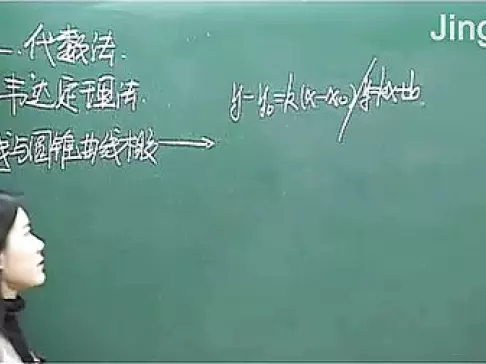 Jing
一、代数法
韦达定理法
线与圆锥曲线相交 → y-y₀=k(x-x₀)/y=kx+b